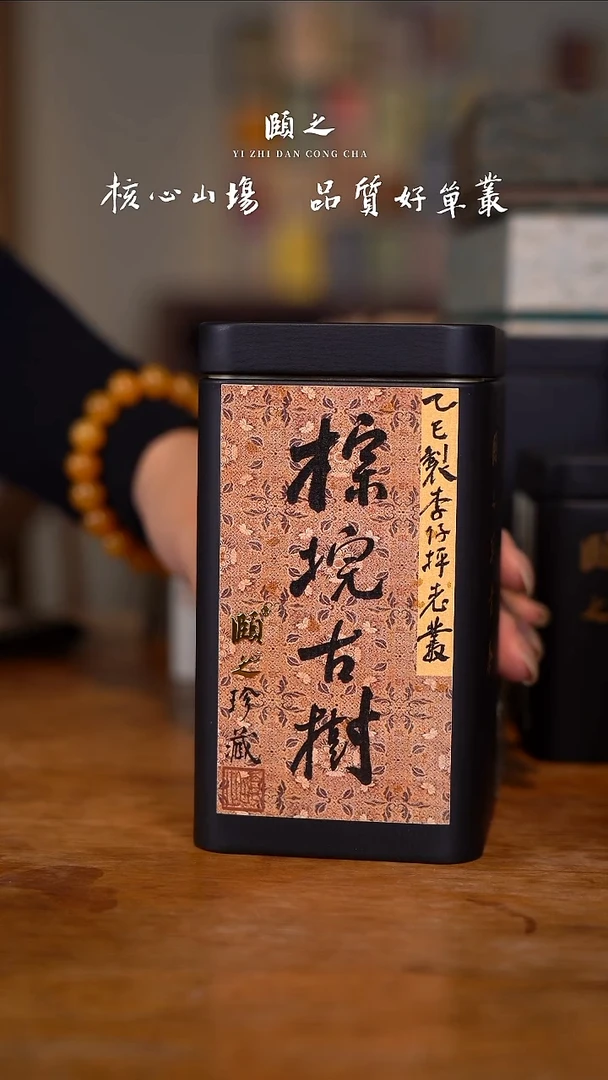 頤之
YI ZHI DAN CONG CHA
核心山場 品質好單叢
乙巳製李仔坪老叢
棕垸古樹
頤之珍藏